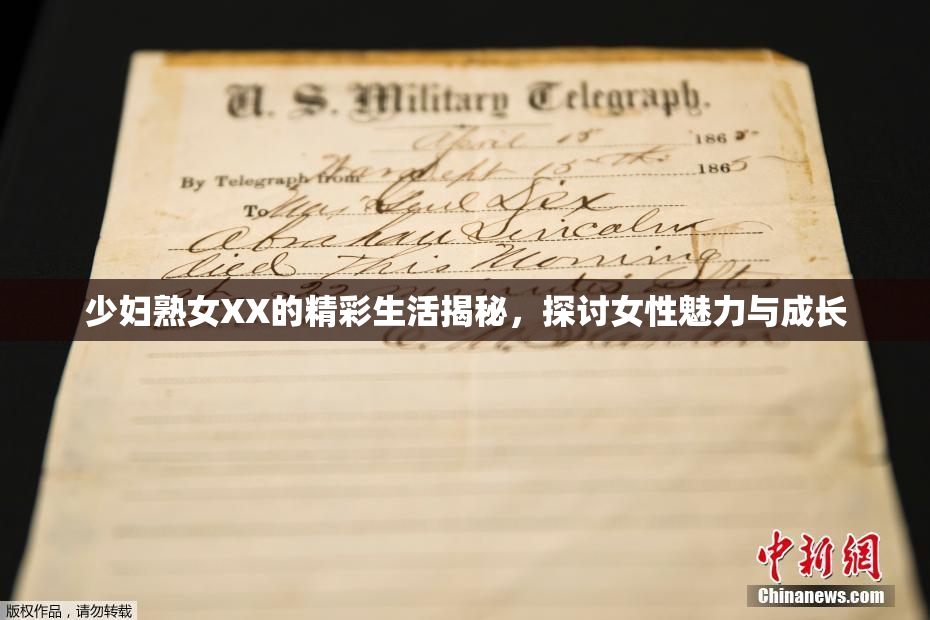 U. S. Military Telegraph.
April 15 1865
By Telegraph from War Dept 15th 1865
To Maj Genl Dix
Abraham Lincoln
died This Morning
at 22 minutes after
少妇熟女XX的精彩生活揭秘，探讨女性魅力与成长
E. M. Stanton
中新網
Chinanews.com
版权作品，请勿转载